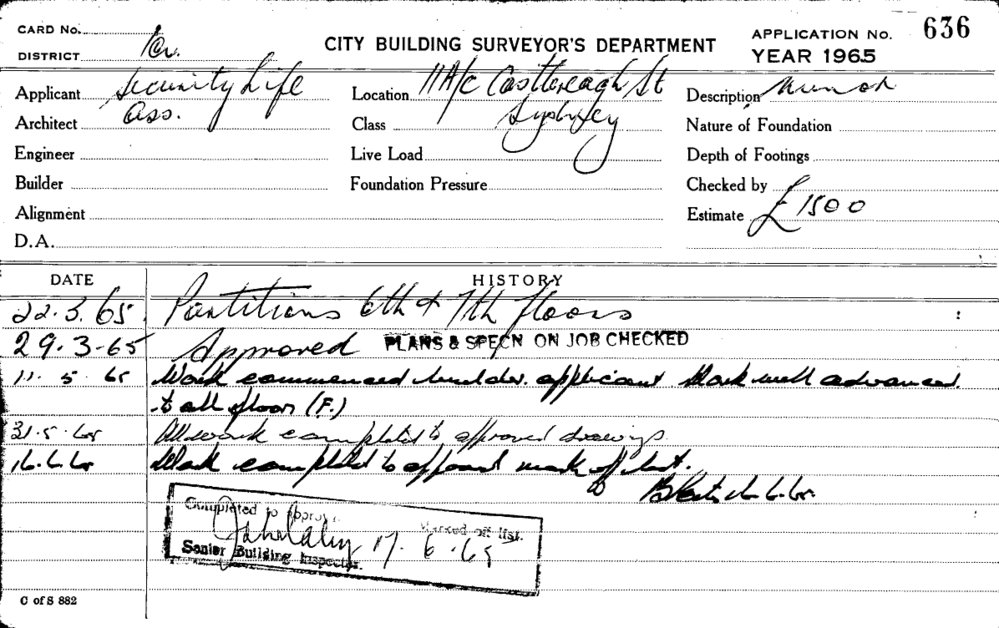 CARD No.
CITY BUILDING SURVEYOR'S DEPARTMENT
APPLICATION No. 636
DISTRICT
YEAR 1965
Applicant Security Life
Ass.
Location Castlereagh St
Sydney
Description
Architect
Class
Nature of Foundation
Engineer
Live Load
Depth of Footings
Builder
Foundation Pressure
Checked by
Alignment
Estimate £1500
D.A.
DATE HISTORY
22.3.65 Partitions 6th & 7th floors
29.3-65 Approved PLANS & SPECN ON JOB CHECKED
11.5.65 Work commenced builder. applicant Work well advanced
to all floors (F.)
31.5.65 All work completed to approved drawings.
16.6.65 Work completed to approval mark off list.
Completed to Approval
Marked off list.
17.6.65
Senior Building Inspector.
C of S 882